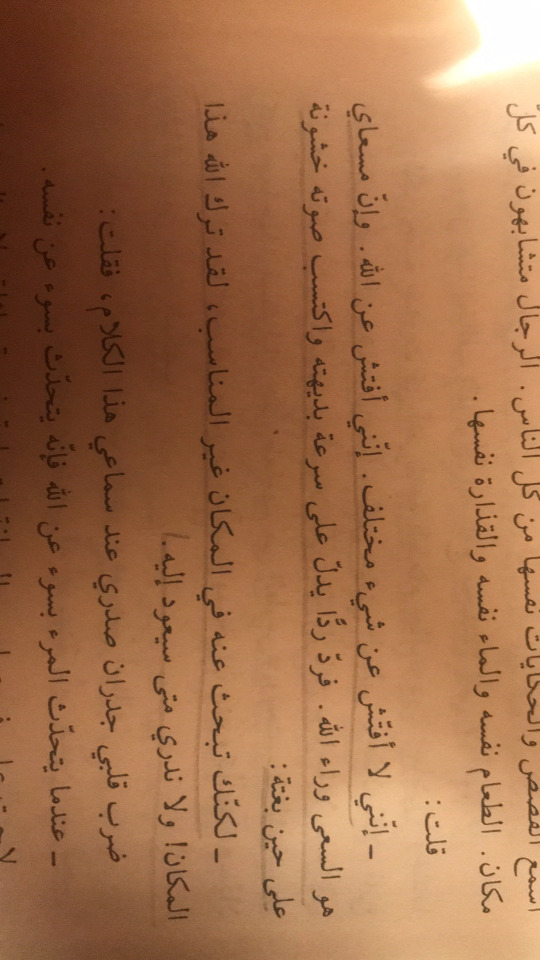 اسمع القصص والحكايات نفسها من كل الناس. الرجال متشابهون في كلّ
مكان. الطعام نفسه والماء نفسه والقذارة نفسها.
قلت:
ـ إنّني لا أفتّش عن شيء مختلف. إنّني أفتش عن الله. وإنّ مسعاي
هو السعى وراء الله. فردّ ردًّا يدلّ على سرعة بديهته واكتسب صوته خشونة
على حين بغتة:
ـ لكنّك تبحث عنه في المكان غير المناسب، لقد ترك الله هذا
المكان! ولا ندري متى سيعود إليه.
ضرب قلبي جدران صدري عند سماعي هذا الكلام، فقلت:
ـ عندما يتحدّث المرء بسوء عن الله فإنّه يتحدّث بسوء عن نفسه.